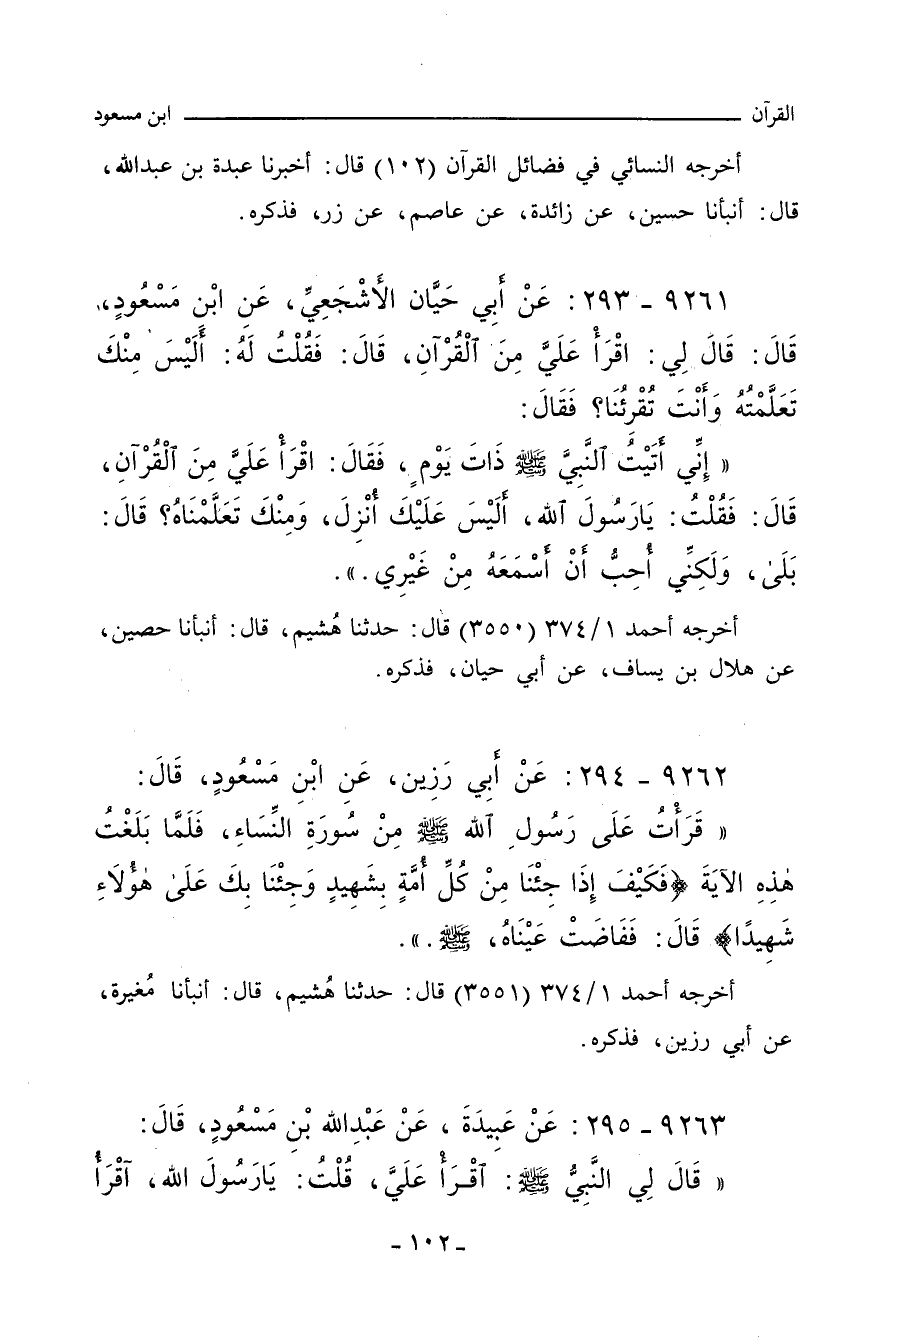 القرآن ــــــــــــــــ ابن مسعود
أخرجه النسائي في فضائل القرآن (١٠٢) قال: أخبرنا عبدة بن عبدالله،
قال: أنبأنا حسين، عن زائدة، عن عاصم، عن زر، فذكره.
٩٢٦١ - ٢٩٣: عَنْ أَبي حَيَّان الأَشْجَعِيِّ، عَنِ ابْنِ مَسْعُودٍ،
قَالَ: قَالَ لِي: اقْرَأْ عَلَيَّ مِنَ ٱلْقُرْآنِ، قَالَ: فَقُلْتُ لَهُ: أَلَيْسَ مِنْكَ
تَعَلَّمْتُهُ وَأَنْتَ تُقْرِئُنَا؟ فَقَالَ:
« إِنِّي أَتَيْتُ ٱلنَّبِيَّ ﷺ ذَاتَ يَوْمٍ، فَقَالَ: اقْرَأْ عَلَيَّ مِنَ ٱلْقُرْآنِ،
قَالَ: فَقُلْتُ: يَارَسُولَ ٱلله، أَلَيْسَ عَلَيْكَ أُنْزِلَ، وَمِنْكَ تَعَلَّمْنَاهُ؟ قَالَ:
بَلَىٰ، وَلَكِنِّي أُحِبُّ أَنْ أَسْمَعَهُ مِنْ غَيْرِي.».
أخرجه أحمد ٣٧٤/١ (٣٥٥٠) قال: حدثنا هُشيم، قال: أنبأنا حصين،
عن هلال بن يساف، عن أبي حيان، فذكره.
٩٢٦٢ - ٢٩٤: عَنْ أَبِي رَزِين، عَنِ ابْنِ مَسْعُودٍ، قَالَ:
« قَرَأْتُ عَلَى رَسُولِ ٱلله ﷺ مِنْ سُورَةِ النِّسَاءِ، فَلَمَّا بَلَغْتُ
هٰذِهِ الآيَةَ ﴿فَكَيْفَ إِذَا جِئْنَا مِنْ كُلِّ أُمَّةٍ بِشَهِيدٍ وَجِئْنَا بِكَ عَلَىٰ هٰؤُلَاءِ
شَهِيدًا﴾ قَالَ: فَفَاضَتْ عَيْنَاهُ، ﷺ.».
أخرجه أحمد ٣٧٤/١ (٣٥٥١) قال: حدثنا هُشيم، قال: أنبأنا مُغيرة،
عن أبي رزين، فذكره.
٩٢٦٣ - ٢٩٥: عَنْ عَبِيدَةَ، عَنْ عَبْدِالله بْنِ مَسْعُودٍ، قَالَ:
« قَالَ لِي النَّبِيُّ ﷺ: ٱقْرَأْ عَلَيَّ، قُلْتُ: يَارَسُولَ الله، آقْرَأُ
- ١٠٢ -